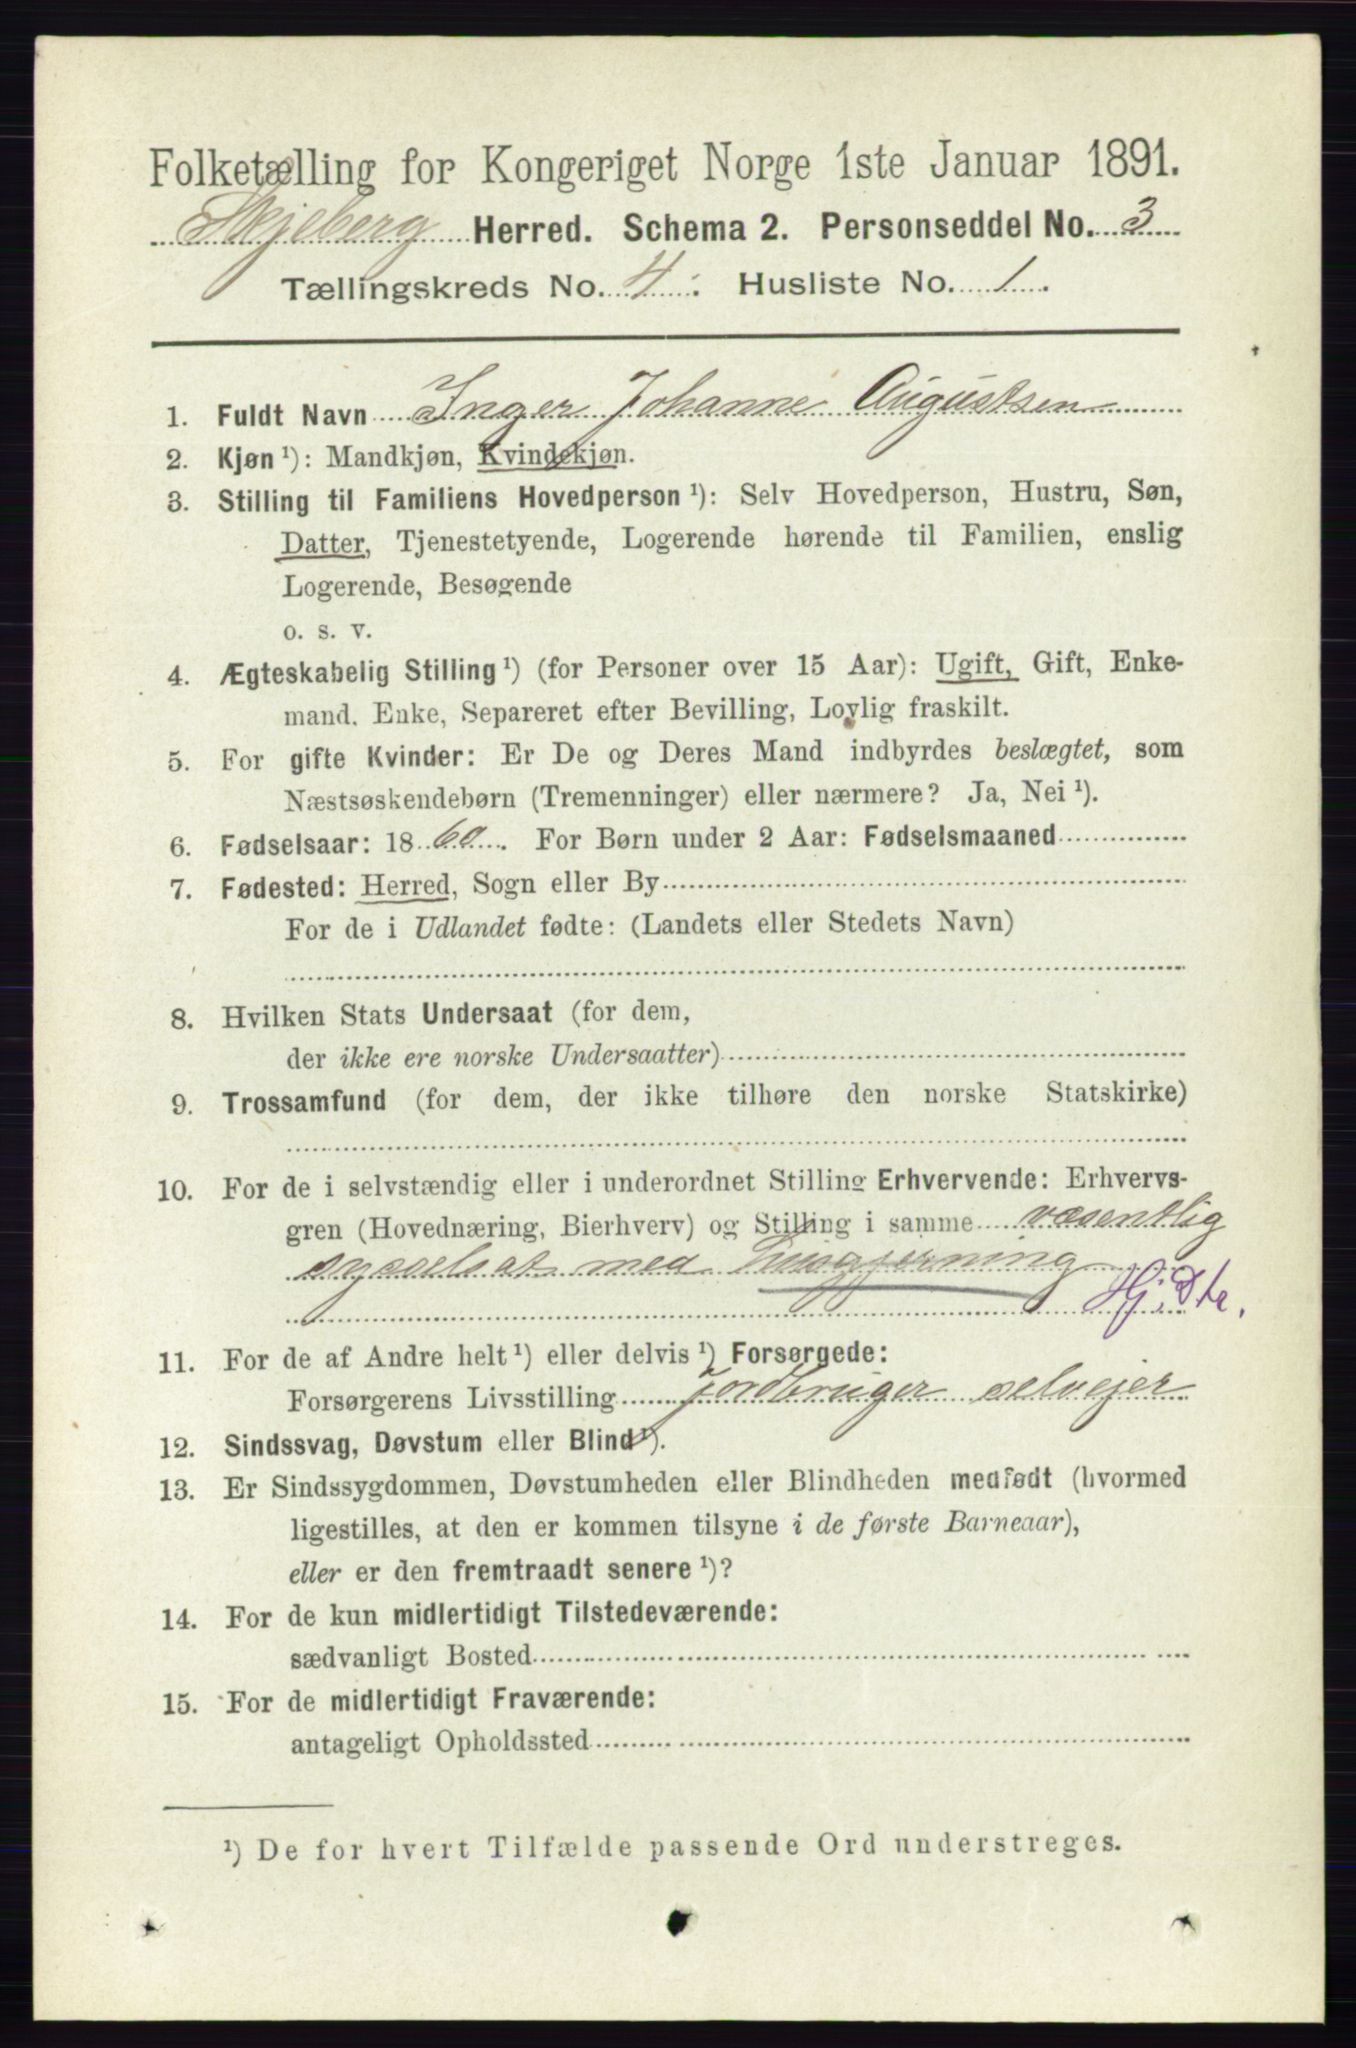 Folketælling for Kongeriget Norge 1ste Januar 1891.
Skjeberg Herred. Schema 2. Personseddel No. 3
Tællingskreds No. 4. Husliste No. 1.
1. Fuldt Navn Inger Johanne Augustsen
2. Kjøn ¹): Mandkjøn, Kvindekjøn.
3. Stilling til Familiens Hovedperson ¹): Selv Hovedperson, Hustru, Søn,
Datter, Tjenestetyende, Logerende hørende til Familien, enslig
Logerende, Besøgende
o. s. v.
4. Ægteskabelig Stilling ¹) (for Personer over 15 Aar): Ugift, Gift, Enke-
mand, Enke, Separeret efter Bevilling, Lovlig fraskilt.
5. For gifte Kvinder: Er De og Deres Mand indbyrdes beslægtet, som
Næstsøskendebørn (Tremenninger) eller nærmere? Ja, Nei ¹).
6. Fødselsaar: 1860. For Børn under 2 Aar: Fødselsmaaned
7. Fødested: Herred, Sogn eller By
For de i Udlandet fødte: (Landets eller Stedets Navn)
8. Hvilken Stats Undersaat (for dem,
der ikke ere norske Undersaatter)
9. Trossamfund (for dem, der ikke tilhøre den norske Statskirke)
10. For de i selvstændig eller i underordnet Stilling Erhvervende: Erhvervs-
gren (Hovednæring, Bierhverv) og Stilling i samme væsentlig
sysselsat med Husgjerning
Hj. Dtr.
11. For de af Andre helt ¹) eller delvis ¹) Forsørgede:
Forsørgerens Livsstilling Jordbruger selvejer
12. Sindssvag, Døvstum eller Blind ¹).
13. Er Sindssygdommen, Døvstumheden eller Blindheden medfødt (hvormed
ligestilles, at den er kommen tilsyne i de første Barneaar),
eller er den fremtraadt senere ¹)?
14. For de kun midlertidigt Tilstedeværende:
sædvanligt Bosted
15. For de midlertidigt Fraværende:
antageligt Opholdssted
¹) De for hvert Tilfælde passende Ord understreges.